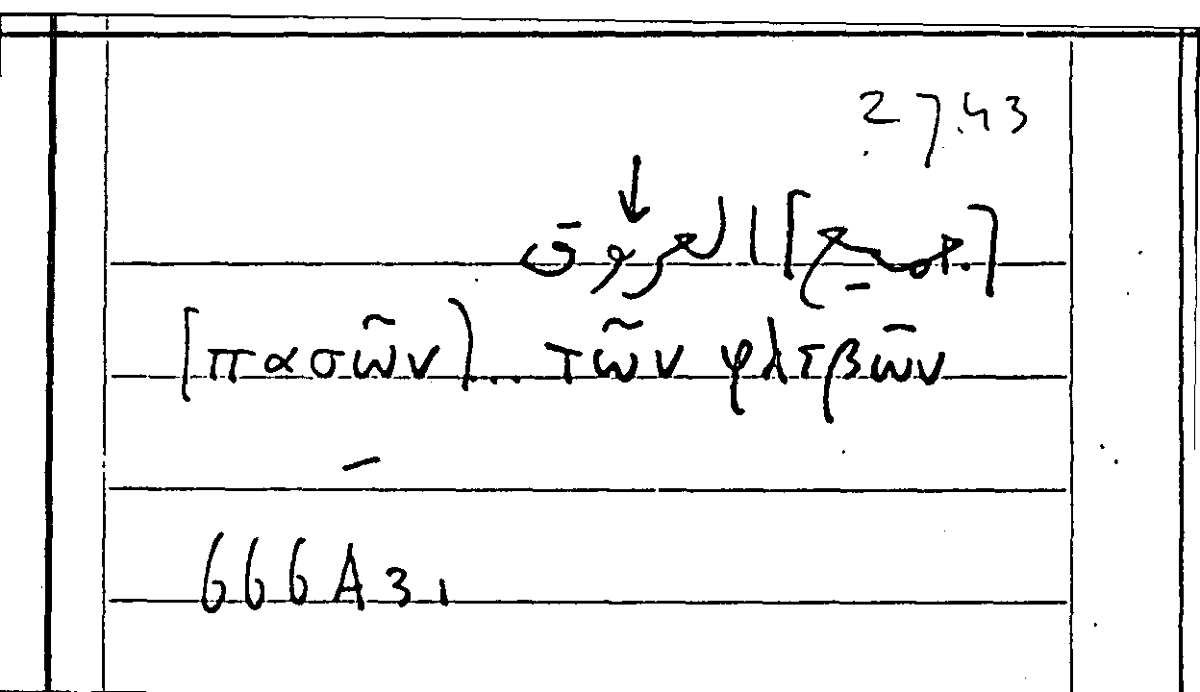 27.43
↓
[جميع] العروق
[πασῶν]... τῶν φλεβῶν
–
666A31